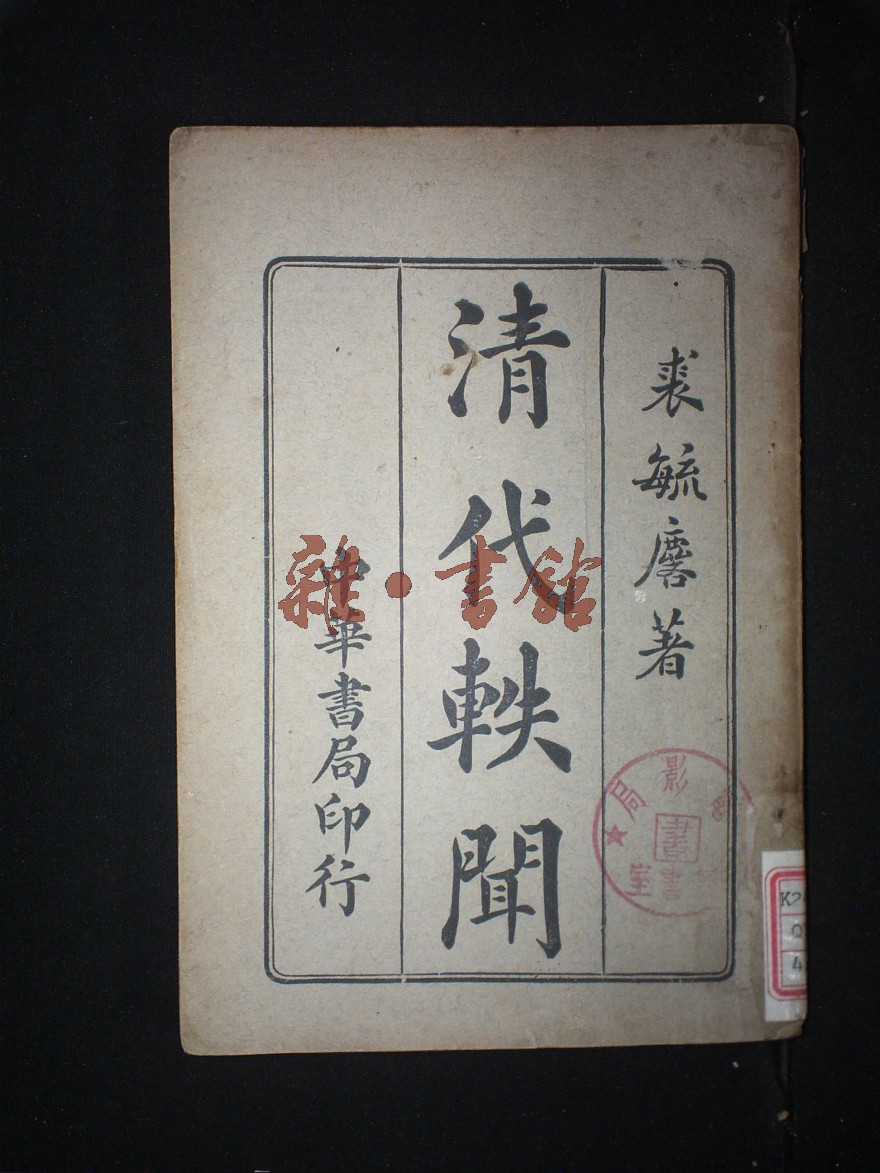 裘毓麐著
清代軼聞
中華書局印行
雜·書館
影
局
K2
4